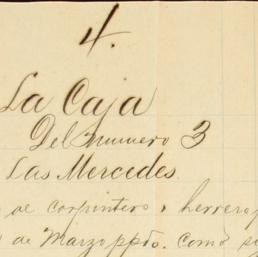 4.
La Caja
Del numero 3
Las Mercedes.
de carpintero y herrero
de Marzo ppdo. Como